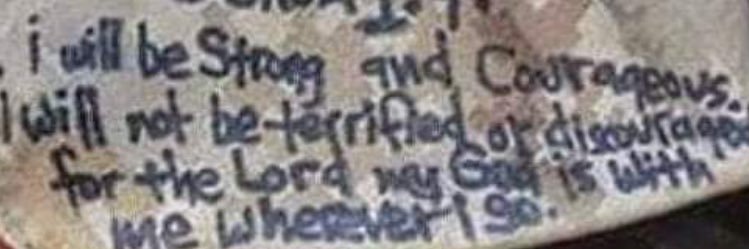 i will be Strong and Courageous.
I will not be terrified or discouraged
for the Lord my God is with
me wherever I go.